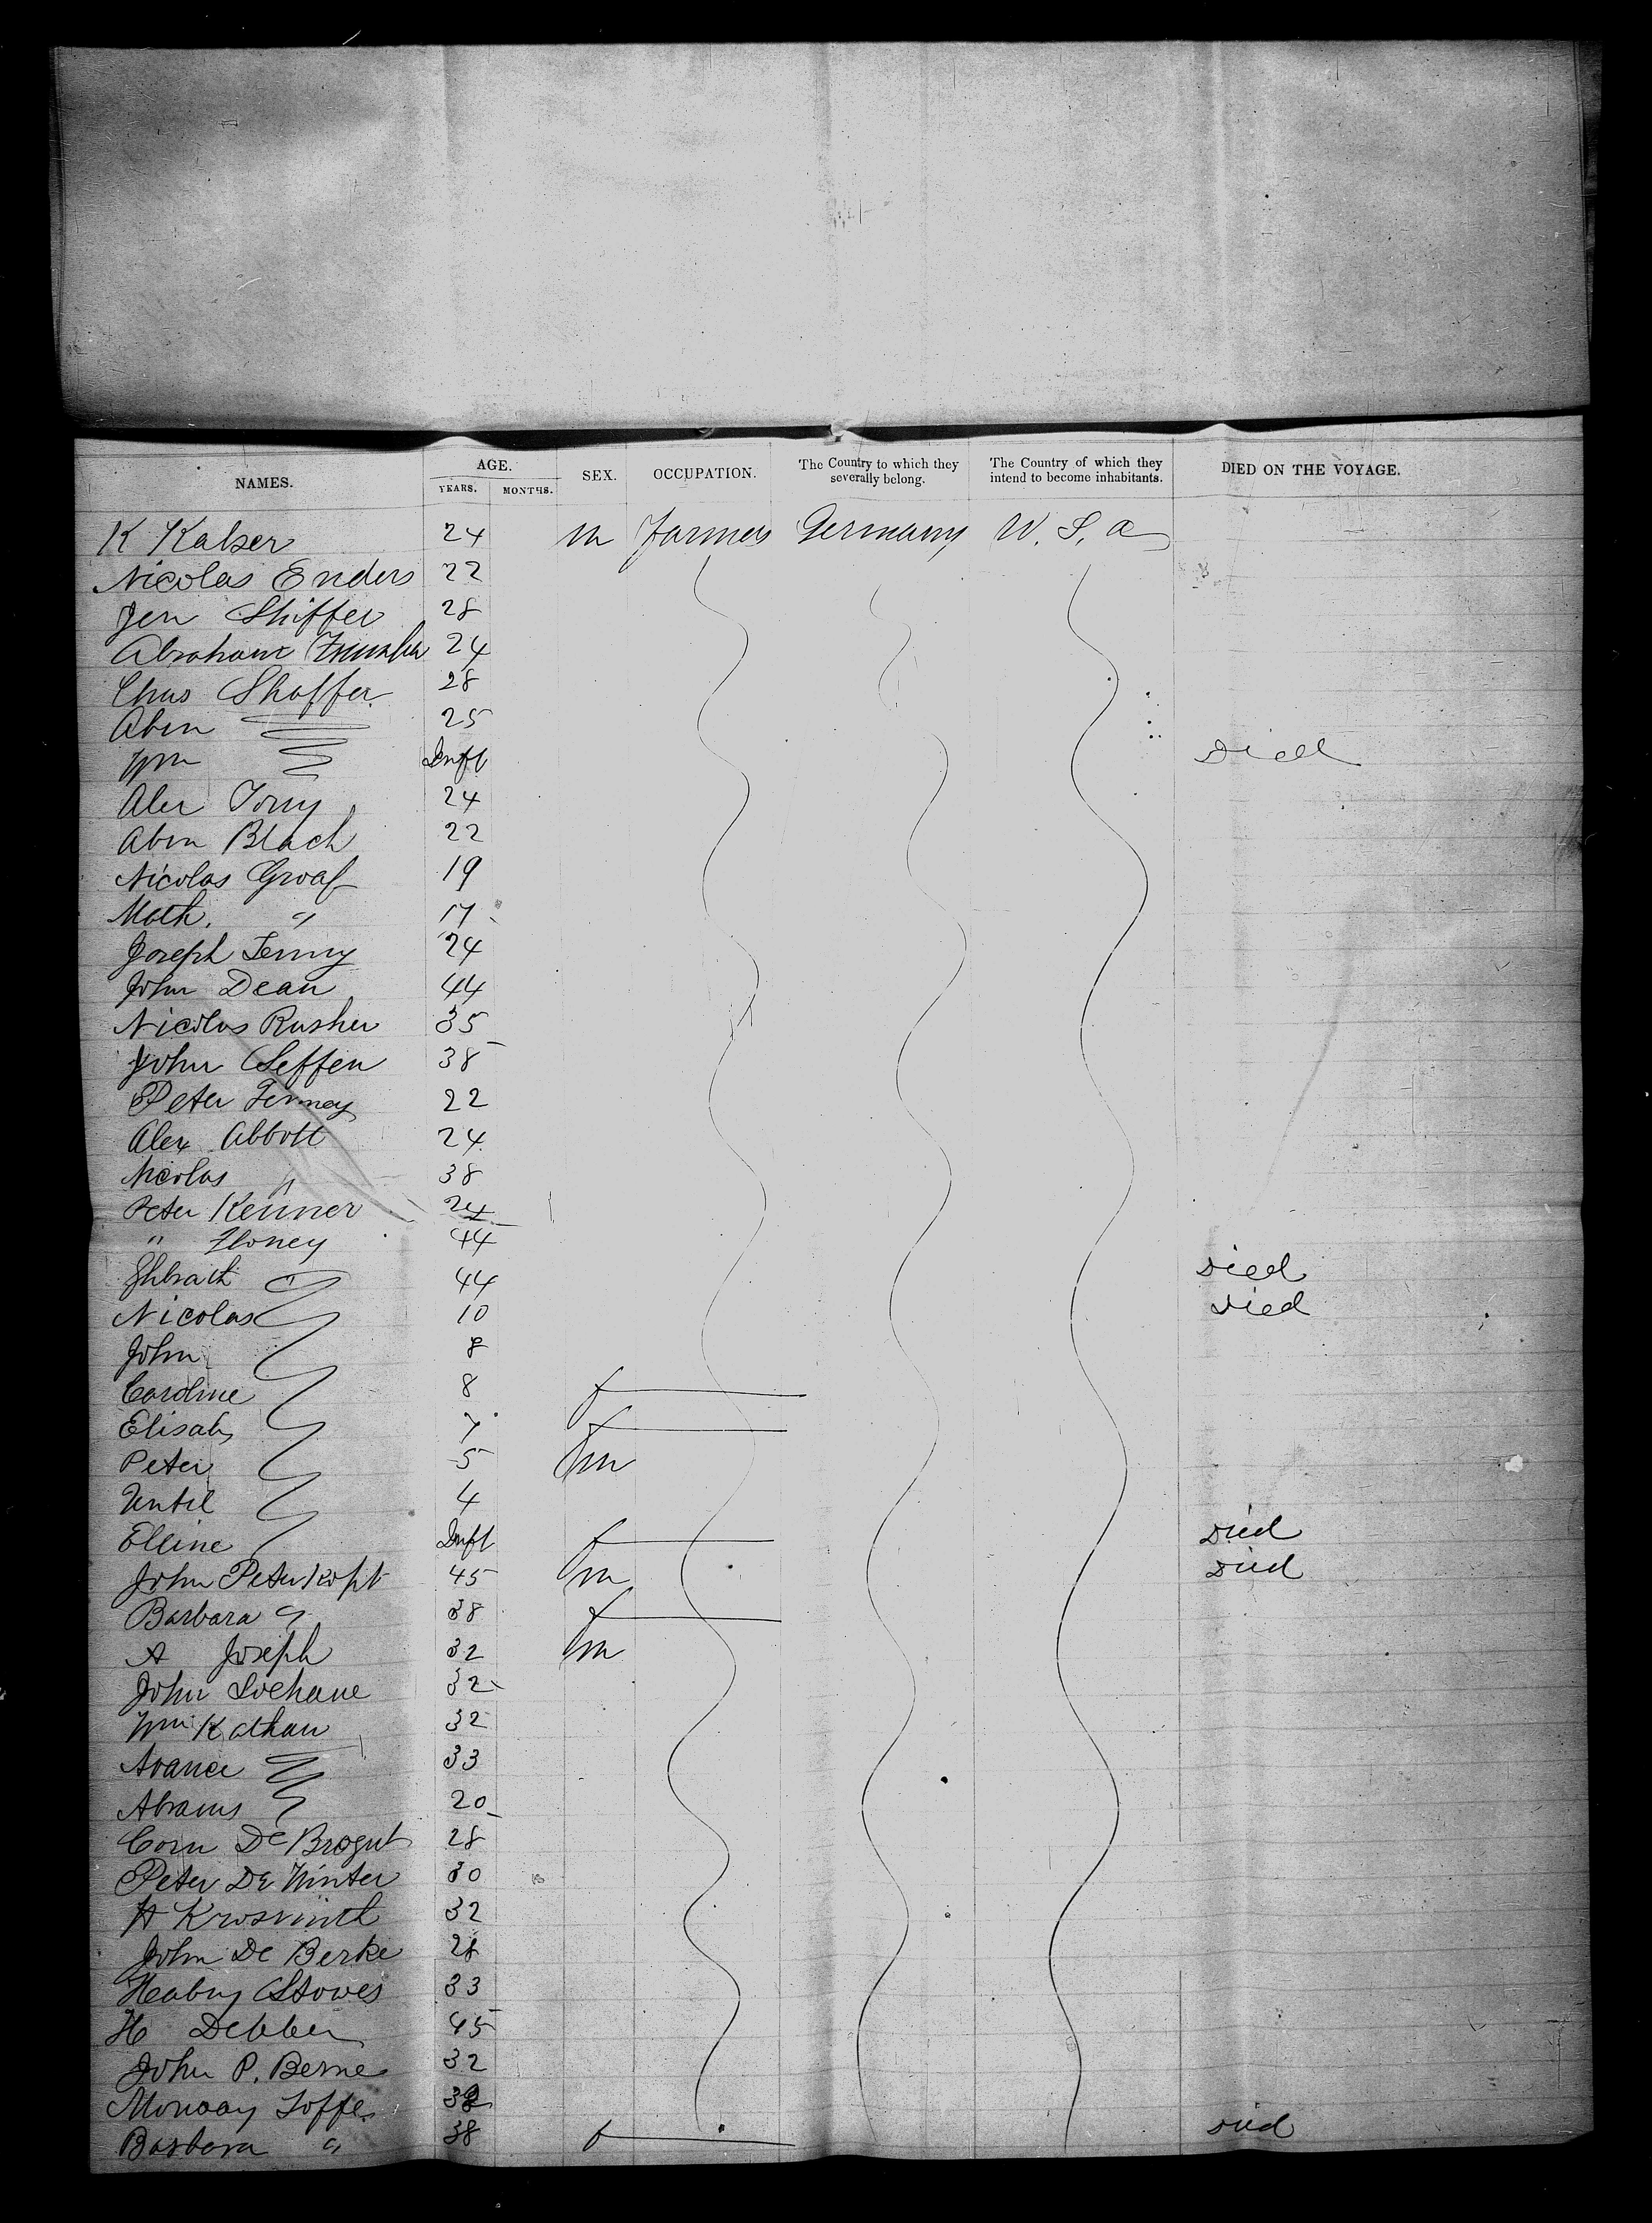 NAMES. AGE. SEX. OCCUPATION. The Country to which they severally belong. The Country of which they intend to become inhabitants. DIED ON THE VOYAGE.
YEARS. MONTHS.
K Kalser 24 m Farmer Germany U. S. a
Nicolas Enders 22
Jen Shiffer 28
Abraham 24
Chas Shaffer 28
Abm 25
Wm Inft Died
Alex Tony 24
Abm Blach 22
Nicolas Groaf 19
Math. " 17
Joseph Fenny 24
John Dean 44
Nicolas Rusher 35
John Seffen 38
Peter Fenney 22
Alex Abbott 24
Nicolas " 38
Peter Kenner 24
" Floney 44
44 Died
Nicolas 10 Died
John 8
Caroline 8 f
Elisab 7 f
Peter 5 m
Until 4
Elline Inft f Died
John Peter Kopt 45 m Died
Barbara " 38 f
A Joseph 32 m
John Lochane 32
Wm Kathan 32
Avance 33
Abrams 20
Corn De Brogut 28
Peter De Winter 30
H Krosvinth 32
John De Berke 28
Heabny Stowes 33
H Debber 45
John P. Berne 32
Monday Loffe 32
Barbara " 38 f Died